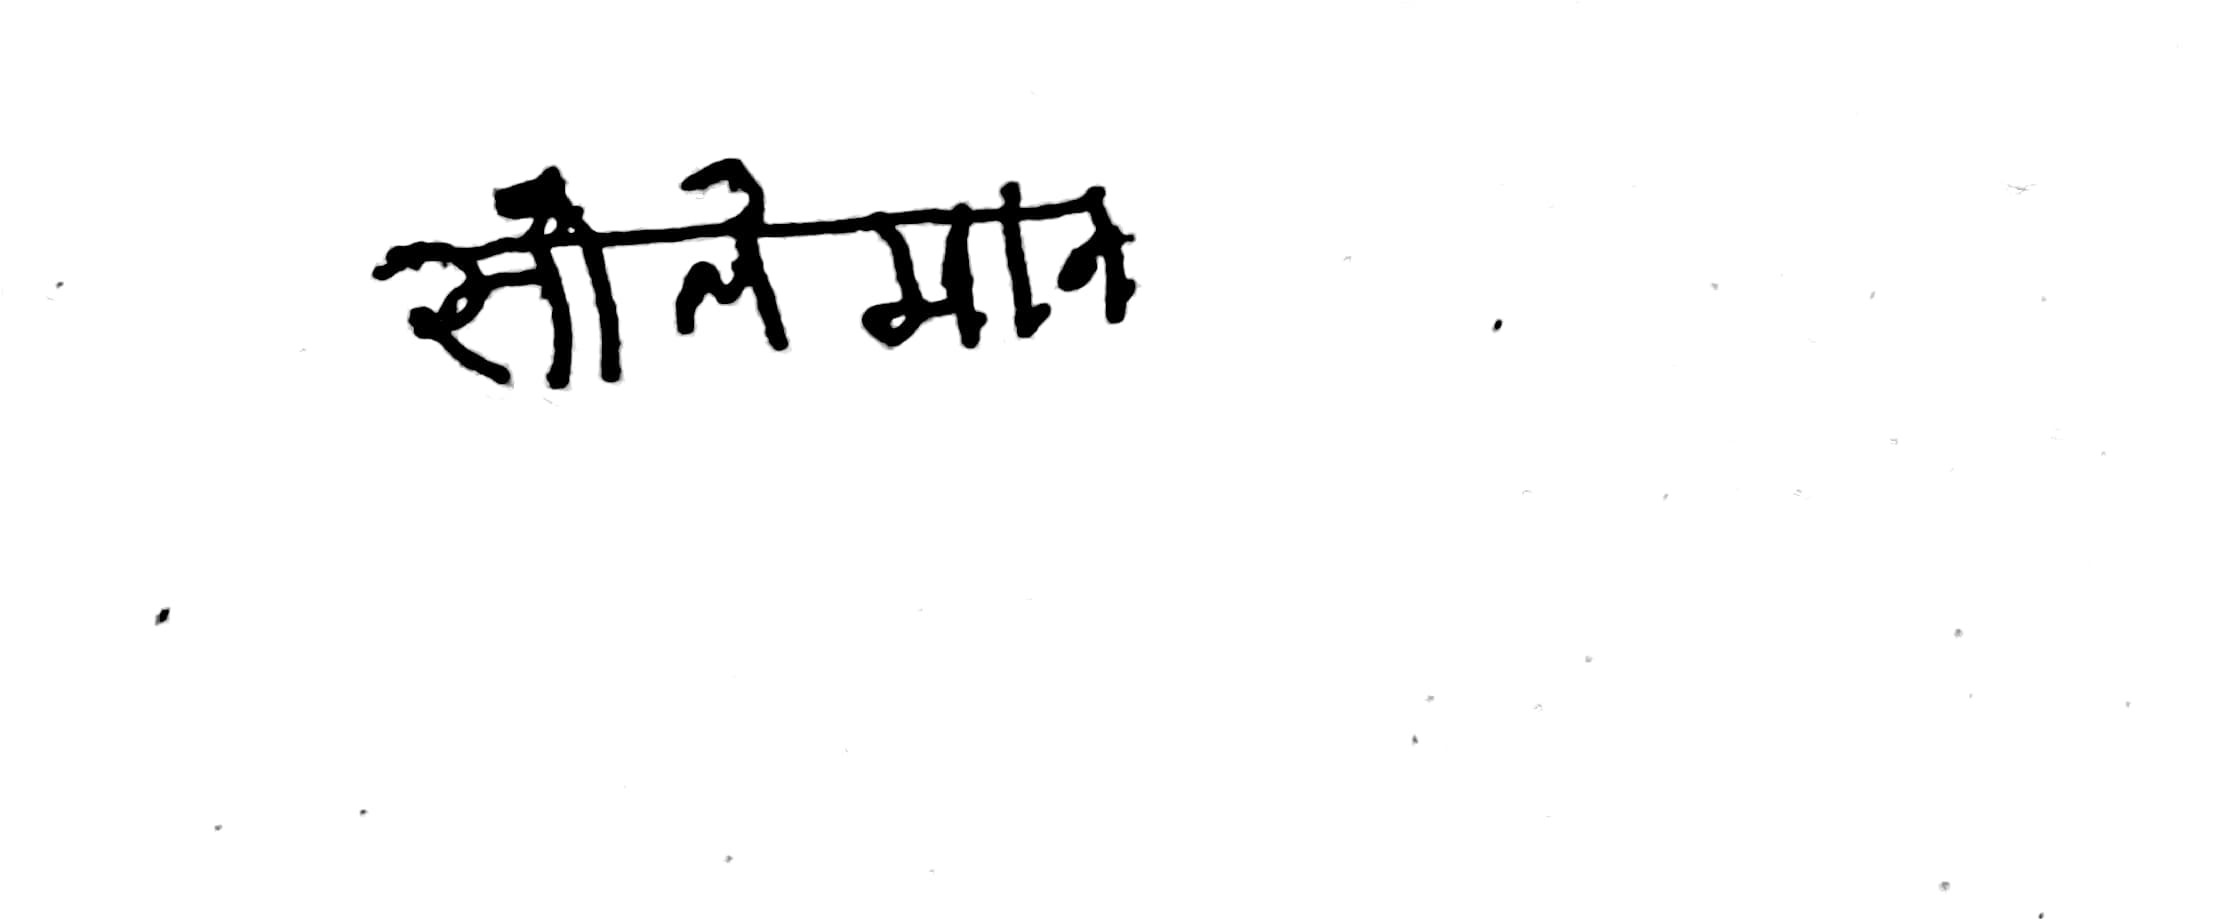 सौलेमान